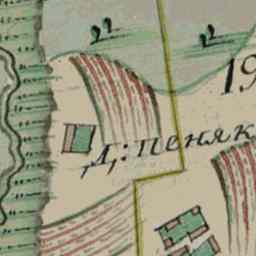 19
Д: пеняк